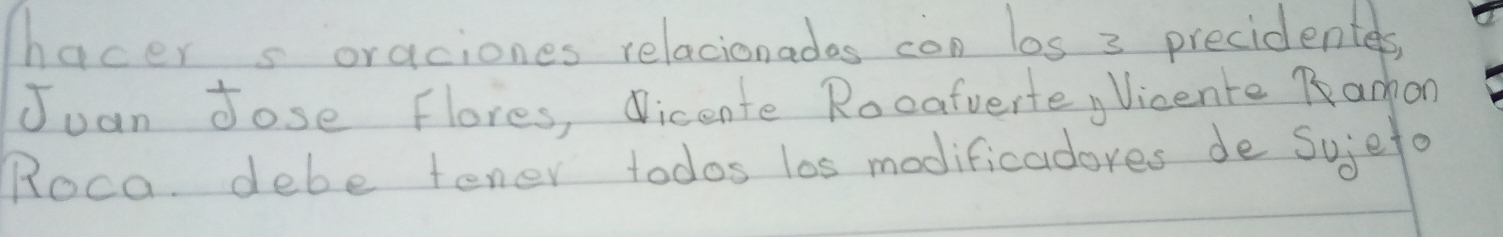 hacer 5 oraciones relacionados con los 3 precidentes,
Juan Jose Flores, Vicente Rocafuerte, Vicente Ramon
Roca. debe tener todos los modificadores de Sujeto